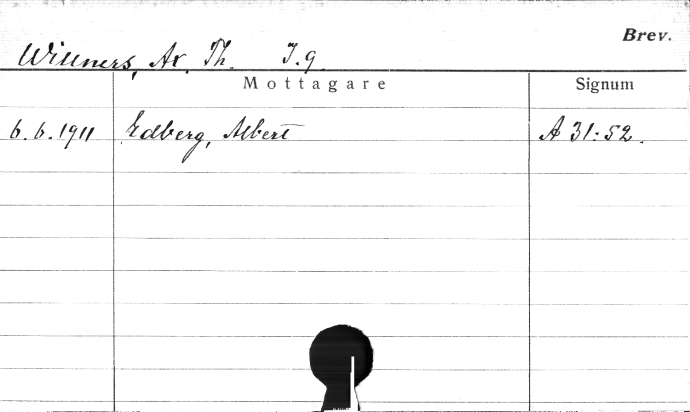 Brev.
Willners, Ax. Th. J.g.
Mottagare Signum
6.6.1911 Edberg, Albert A 31:52.